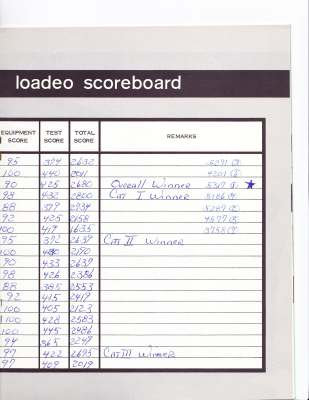 loadeo scoreboard
EQUIPMENT SCORE TEST SCORE TOTAL SCORE REMARKS
95 394 2632
100 440
90 425 2680 Overall Winner
98 432 2800 Cat I Winner
88 379 2934
92 425 2158
100 419 1635
95 392 2639 Cat II Winner
100 2190
90 433 2639
98 426 2356
88 385 2553
92 415 2419
100 405 2123
100 428 2583
100 445 2486
94 365 2249
97 422 2695 Cat III Winner
97 409 2019